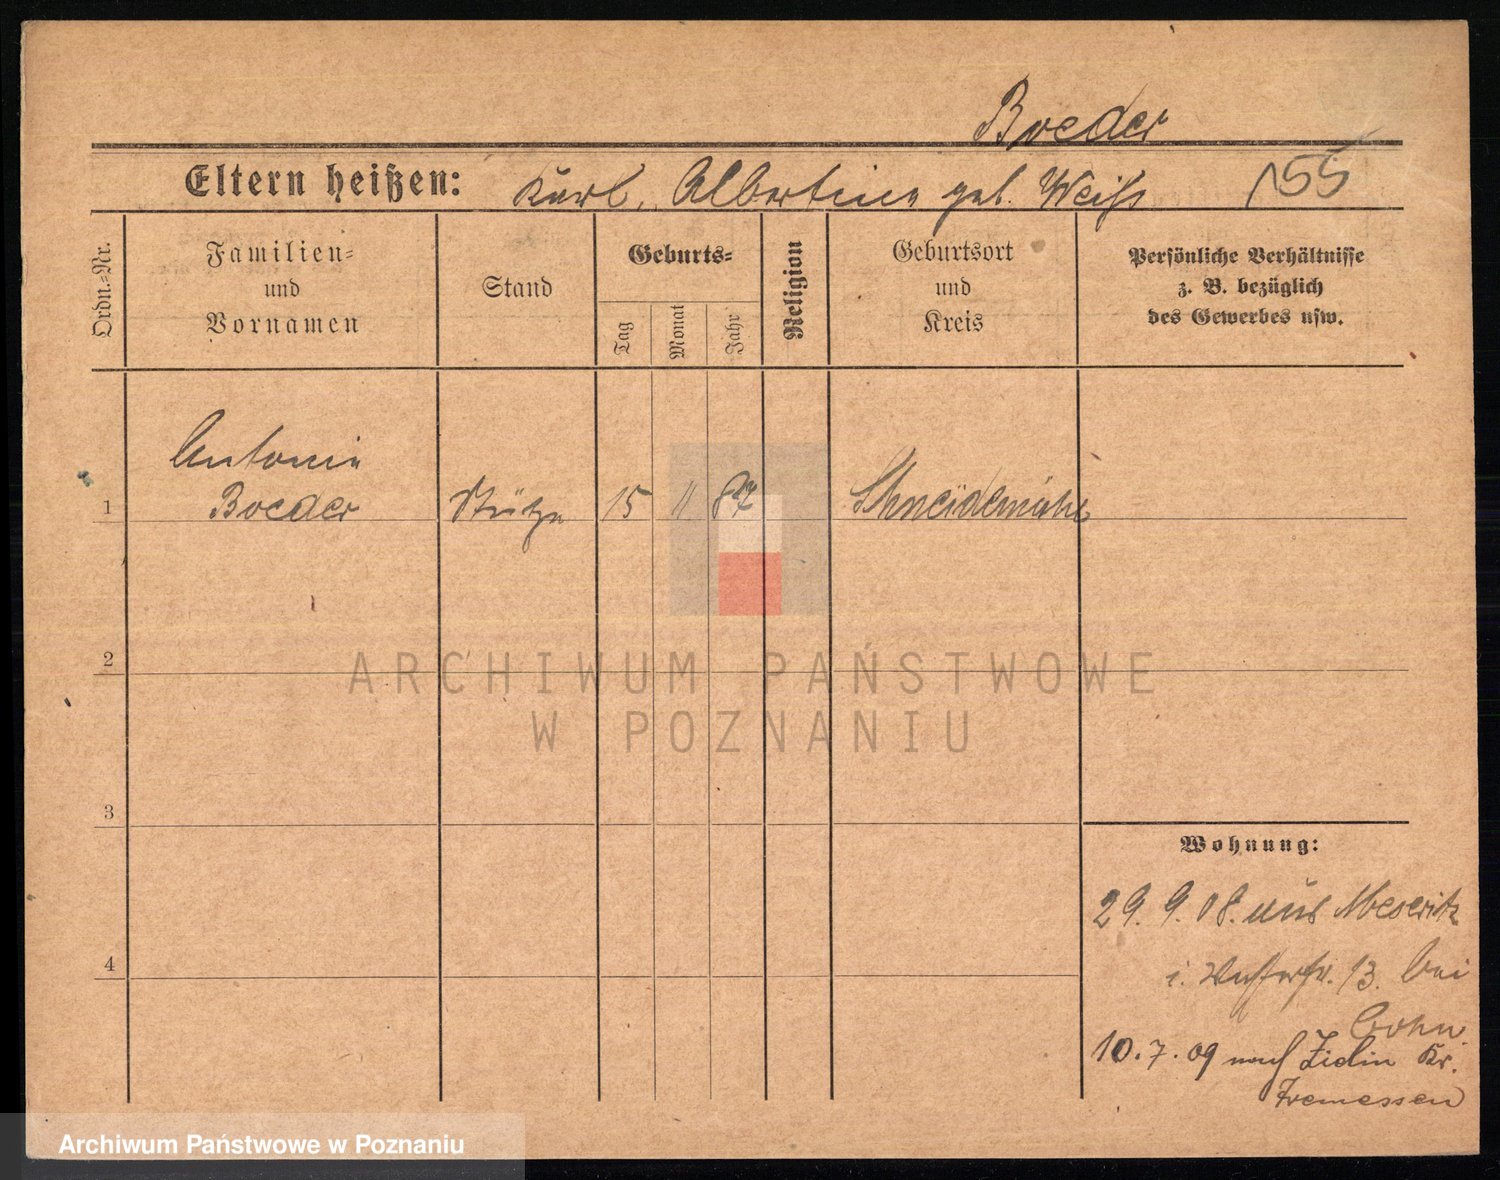 Boeder
Eltern heißen: Karl, Albertine geb. Weiss 155
Ordn.-Nr.
Familien-
und
Vornamen
Stand
Geburts-
Tag
Monat
Jahr
Religion
Geburtsort
und
Kreis
Persönliche Verhältnisse
z. B. bezüglich
des Gewerbes usw.
Antonie
1 Boeder Stütze 15 11 87 Schneidemühl
2
3
4
Wohnung:
29. 9. 08. aus Meseritz
i. 13. bei
10. 7. 09 nach Kr.
Tremessen
ARCHIWUM PAŃSTWOWE
W POZNANIU
Archiwum Państwowe w Poznaniu